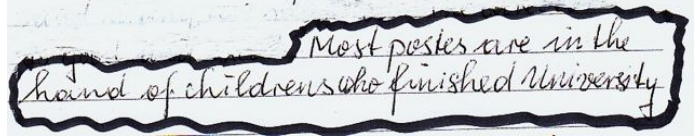 Most postes are in the
hand of childrens who finished University